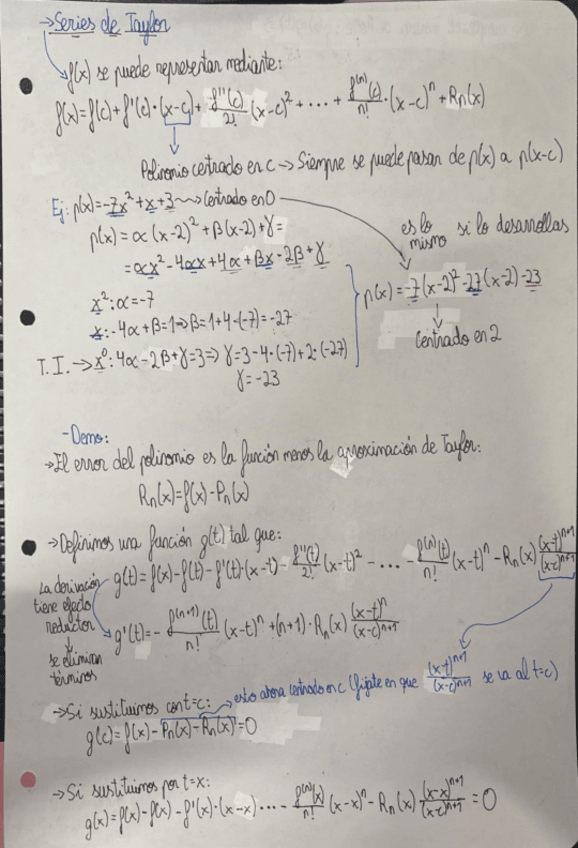 →Series de Taylor
→f(x) se puede representar mediante:
f(x)=f(c)+f'(c)·(x-c)+f''(c)/2!(x-c)²+...+f⁽ⁿ⁾(c)/n!·(x-c)ⁿ+Rn(x)
Polinomio centrado en c→Siempre se puede pasar de p(x) a p(x-c)
Ej: p(x)=-7x²+x+3⇝Centrado en 0
p(x)=α(x-2)²+β(x-2)+γ=
=αx²-4αx+4α+βx-2β+γ
x²:α=-7
x:-4α+β=1⇒β=1+4·(-7)=-27
T.I.→x⁰:4α-2β+γ=3⇒γ=3-4·(-7)+2·(-27)
γ=-23
es lo mismo si lo desarrollas
p(x)=-7(x-2)²-27(x-2)-23
Centrado en 2
-Demo:
→El error del polinomio es la función menos la aproximación de Taylor:
Rn(x)=f(x)-Pn(x)
→Definimos una función g(t) tal que:
g(t)=f(x)-f(t)-f'(t)·(x-t)-f''(t)/2!(x-t)²-...-f⁽ⁿ⁾(t)/n!(x-t)ⁿ-Rn(x)(x-t)ⁿ⁺¹/(x-c)ⁿ⁺¹
La derivación
tiene efecto
reductor
↓
se eliminan
términos
g'(t)=-f⁽ⁿ⁺¹⁾(t)/n!(x-t)ⁿ+(n+1)·Rn(x)(x-t)ⁿ/(x-c)ⁿ⁺¹
→Si sustituimos con t=c:→esto ahora centrado en c (fíjate en que (x-t)ⁿ⁺¹/(x-c)ⁿ⁺¹ se va al t=c)
g(c)=f(x)-Pn(x)-Rn(x)=0
→Si sustituimos por t=x:
g(x)=f(x)-f(x)-f'(x)·(x-x)...-f⁽ⁿ⁾(x)/n!(x-x)ⁿ-Rn(x)(x-x)ⁿ⁺¹/(x-c)ⁿ⁺¹=0